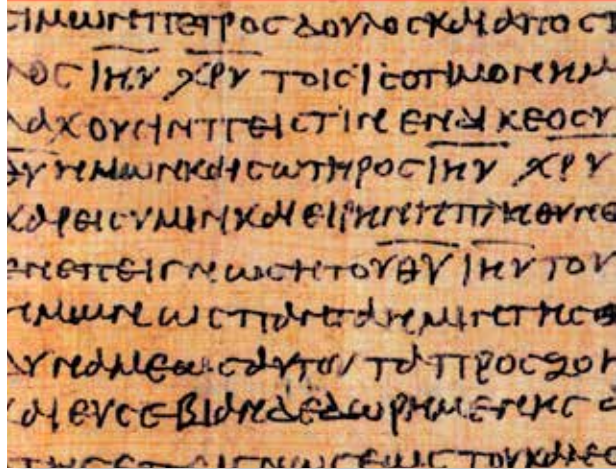 ϲιμωνπετροϲδουλοϲκαιαποϲτ
λοϲ ιηυ χρυ τοιϲιϲοτιμονημ
λαχουϲινπειϲτινενδικεοϲυ
θυημωνκαιϲωτηροϲιηυ χρυ
χαρειϲυμινκαιειρηνηπληθυνθε
ενεπειγνωϲητουθυιηυτου
ημωνωϲπανταημιντηϲθ
δυναμεωϲαυτουταπροϲζοη
καιευϲεβιανδεδωρημενηϲδ
τηϲεπιγνωϲεωϲτουκαλεϲ